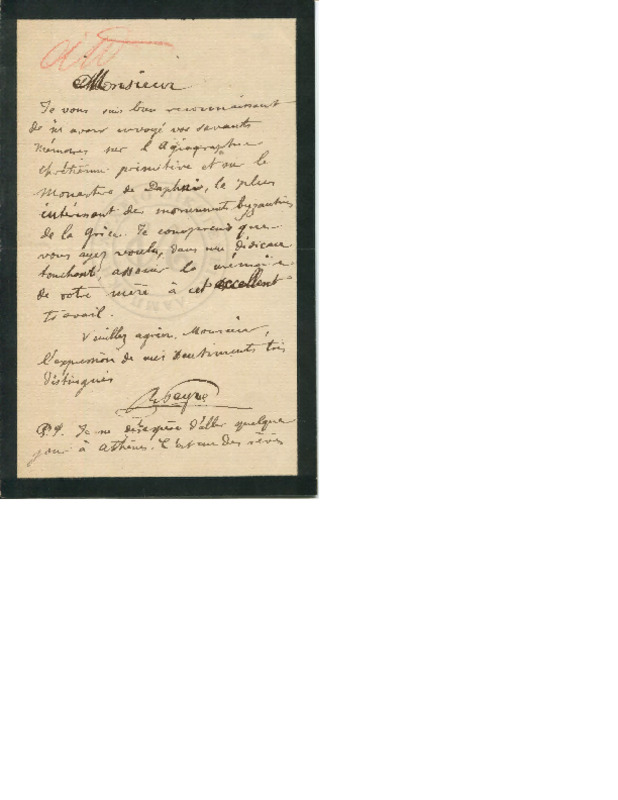 Monsieur
Je vous suis bien reconnaissant
de m'avoir envoyé vos savants
mémoires sur l'Agiographie
chrétienne primitive et sur le
Monastère de Daphni, la plus
intéressant des monuments byzantins
de la Grèce. Je comprends que
vous ayez voulu, dans une dédicace
touchant, associer la mémoire
de votre mère à cet excellent
travail.
Veuillez agréer, Monsieur,
l'expression de mes sentiments très
distingués
PS. Je ne désespère d'aller quelque
jour à Athènes. C'est un des rêves